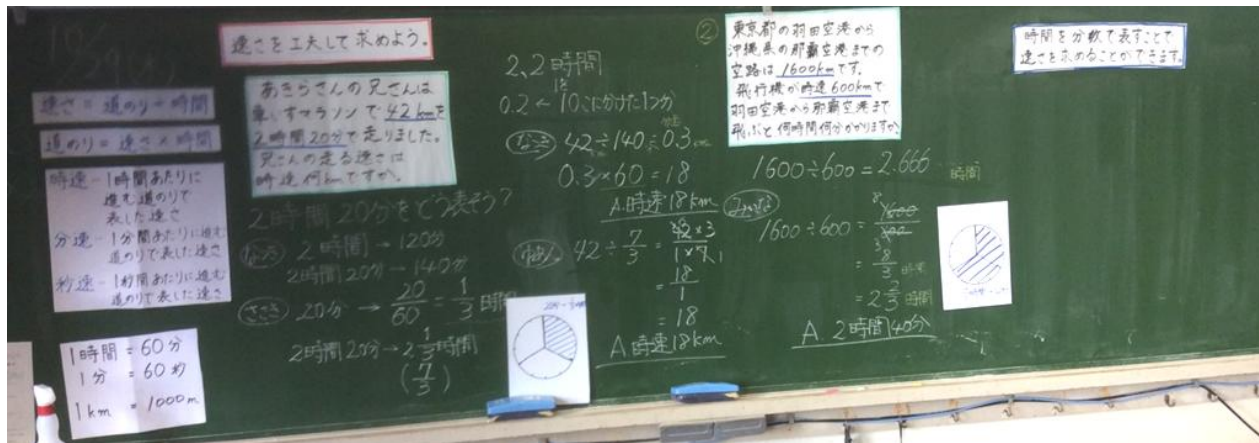 速さを工夫して求めよう。
速さ = 道のり ÷ 時間
道のり = 速さ × 時間
時速-1時間あたりに
進む道のりで
表した速さ
分速-1分間あたりに進む
道のりで表した速さ
秒速-1秒間あたりに進む
道のりで表した速さ
1時間 = 60分
1分 = 60秒
1km = 1000m
あきらさんの兄さんは
マラソンで42kmを
2時間20分で走りました。
兄さんの走る速さは
時速何kmですか。
2時間20分をどう表そう?
2時間 → 120分
2時間20分 → 140分
20分 → 20/60 = 1/3 時間
2時間20分 → 2 1/3 時間
(7/3)
2.2時間
0.2 ←
42÷140=0.3
0.3×60 = 18
A.時速18km
42 ÷ 7/3 = 42×3/1×7
= 18/1
= 18
A 時速18km
②
東京都の羽田空港から
沖縄県の那覇空港までの
空路は1600kmです。
飛行機が時速600kmで
羽田空港から那覇空港まで
飛ぶと何時間何分かかりますか。
1600÷600 = 2.666 時間
みんな
1600÷600 = 1600/600
= 8/3 時間
= 2 2/3 時間
A. 2時間40分
時間を分数で表すことで
速さを求めることができます。